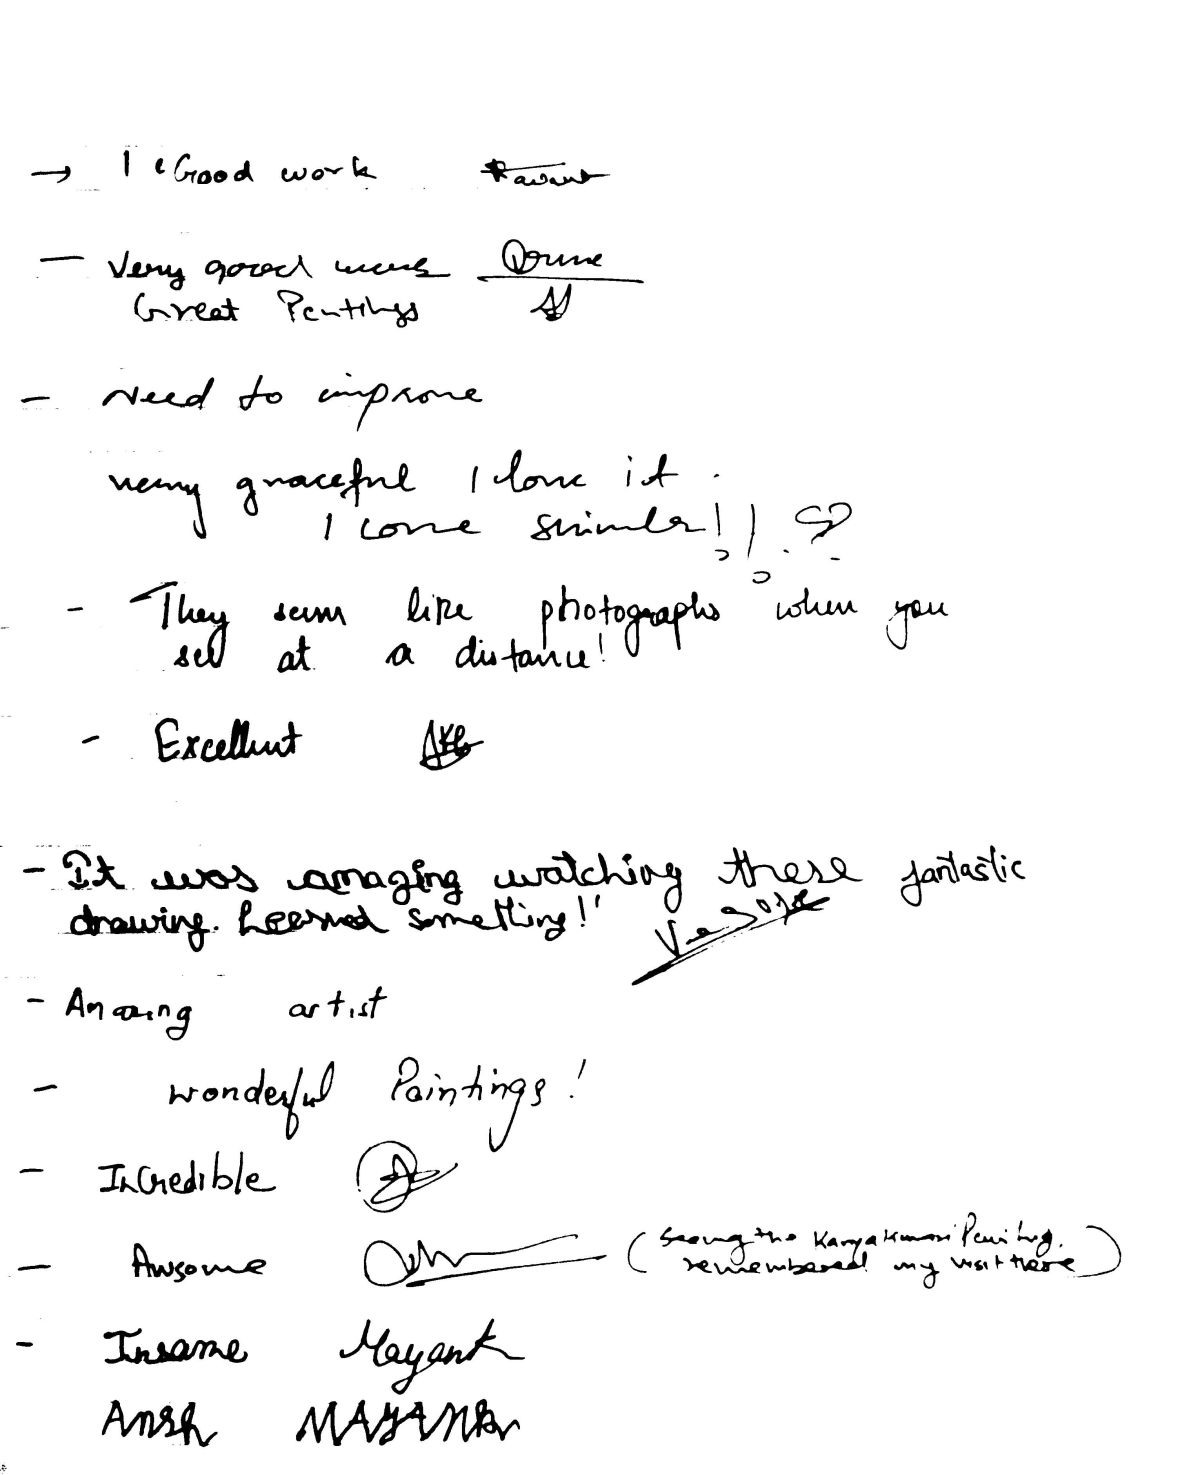 → Good work
- Very good work
Great Pentings
- Need to improve
very graceful I love it.
I love similar!!
- They seem like photographs when you
see at a distance!
- Excellent
- It was amazing watching these fantastic
drawing. Learned something!!
- Amazing artist
- wonderful Paintings!
- InCredible
- Awsome (Seeing the Kanyakumari Painting.
remembered my visit there)
- Insane Mayank
Ansh MAYANK